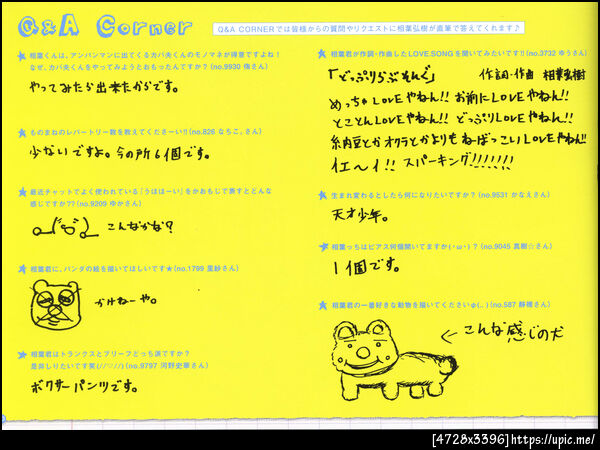 Q&A Corner
Q&A CORNERでは皆様からの質問やリクエストに相葉弘樹が直筆で答えてくれます♪
★ 相葉くんは、アンパンマンに出てくるカバ夫くんのモノマネが得意ですよね！
なぜ、カバ夫くんをやってみようとおもったんですか？(no.9930 侑さん)
やってみたら出来たからです。
★ ものまねのレパートリー数を教えてくださーい!!(no.826 なちこ。さん)
少ないですよ。今の所6個です。
★ 最近チャットでよく使われている「うははーい」をかおもじで表すとどんな
感じですか??(no.9209 ゆかさん)
こんなかな?
★ 相葉君に、パンダの絵を描いてほしいです★(no.1799 里紗さん)
かけねーや。
★ 相葉君はトランクスとブリーフどっち派ですか？
是非しりたいです笑(//▽//)(no.9797 河野史華さん)
ボクサーパンツです。
★ 相葉君が作詞・作曲したLOVE SONGを聞いてみたいです!!(no.3732 ゆうさん)
「どっぷりらぶそんぐ」 作詞・作曲 相葉弘樹
めっちゃLOVEやねん!! お前にLOVEやねん!!
とことんLOVEやねん!! どっぷりLOVEやねん!!
納豆とかオクラとかよりもねばっこいLOVEやねん!!
イエ〜イ!! スパーキング!!!!!!!
★ 生まれ変わるとしたら何になりたいですか？(no.9531 かなえさん)
天才少年。
★ 相葉っちはピアス何個開いてますか(・ω・)？(no.9045 真樹☆さん)
1個です。
★ 相葉君の一番好きな動物を描いてくださいφ(..)(no.587 静穂さん)
←こんな感じの犬
[4728x3396]https://upic.me/